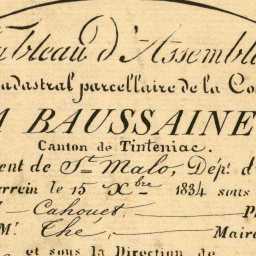 Tableau d'Assembla
adastral parcellaire de la Co
A BAUSSAINE
Canton de Tinteniac.
ent de St Malo, Dép.t d
errein le 15 Xbre 1834 sous
Cahouet P
M.r The Maire
et sous la Direction de